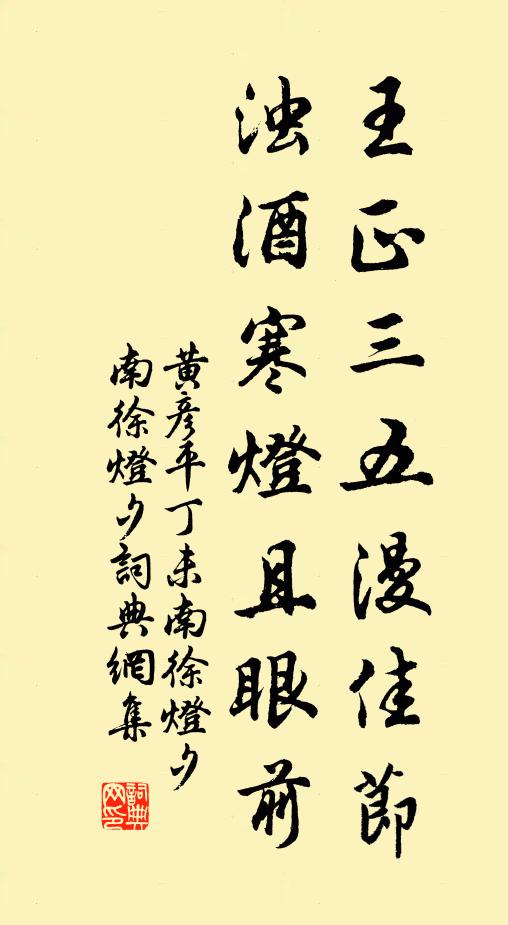 王正三五漫佳節
浊酒寒燈且眼前
黃彥平丁未南徐燈夕
南徐燈夕詞典網集
詞典网印